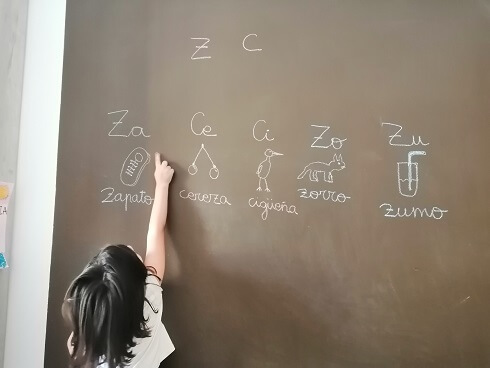 Z C
Za Ce Ci Zo Zu
zapato cereza cigüeña zorro zumo